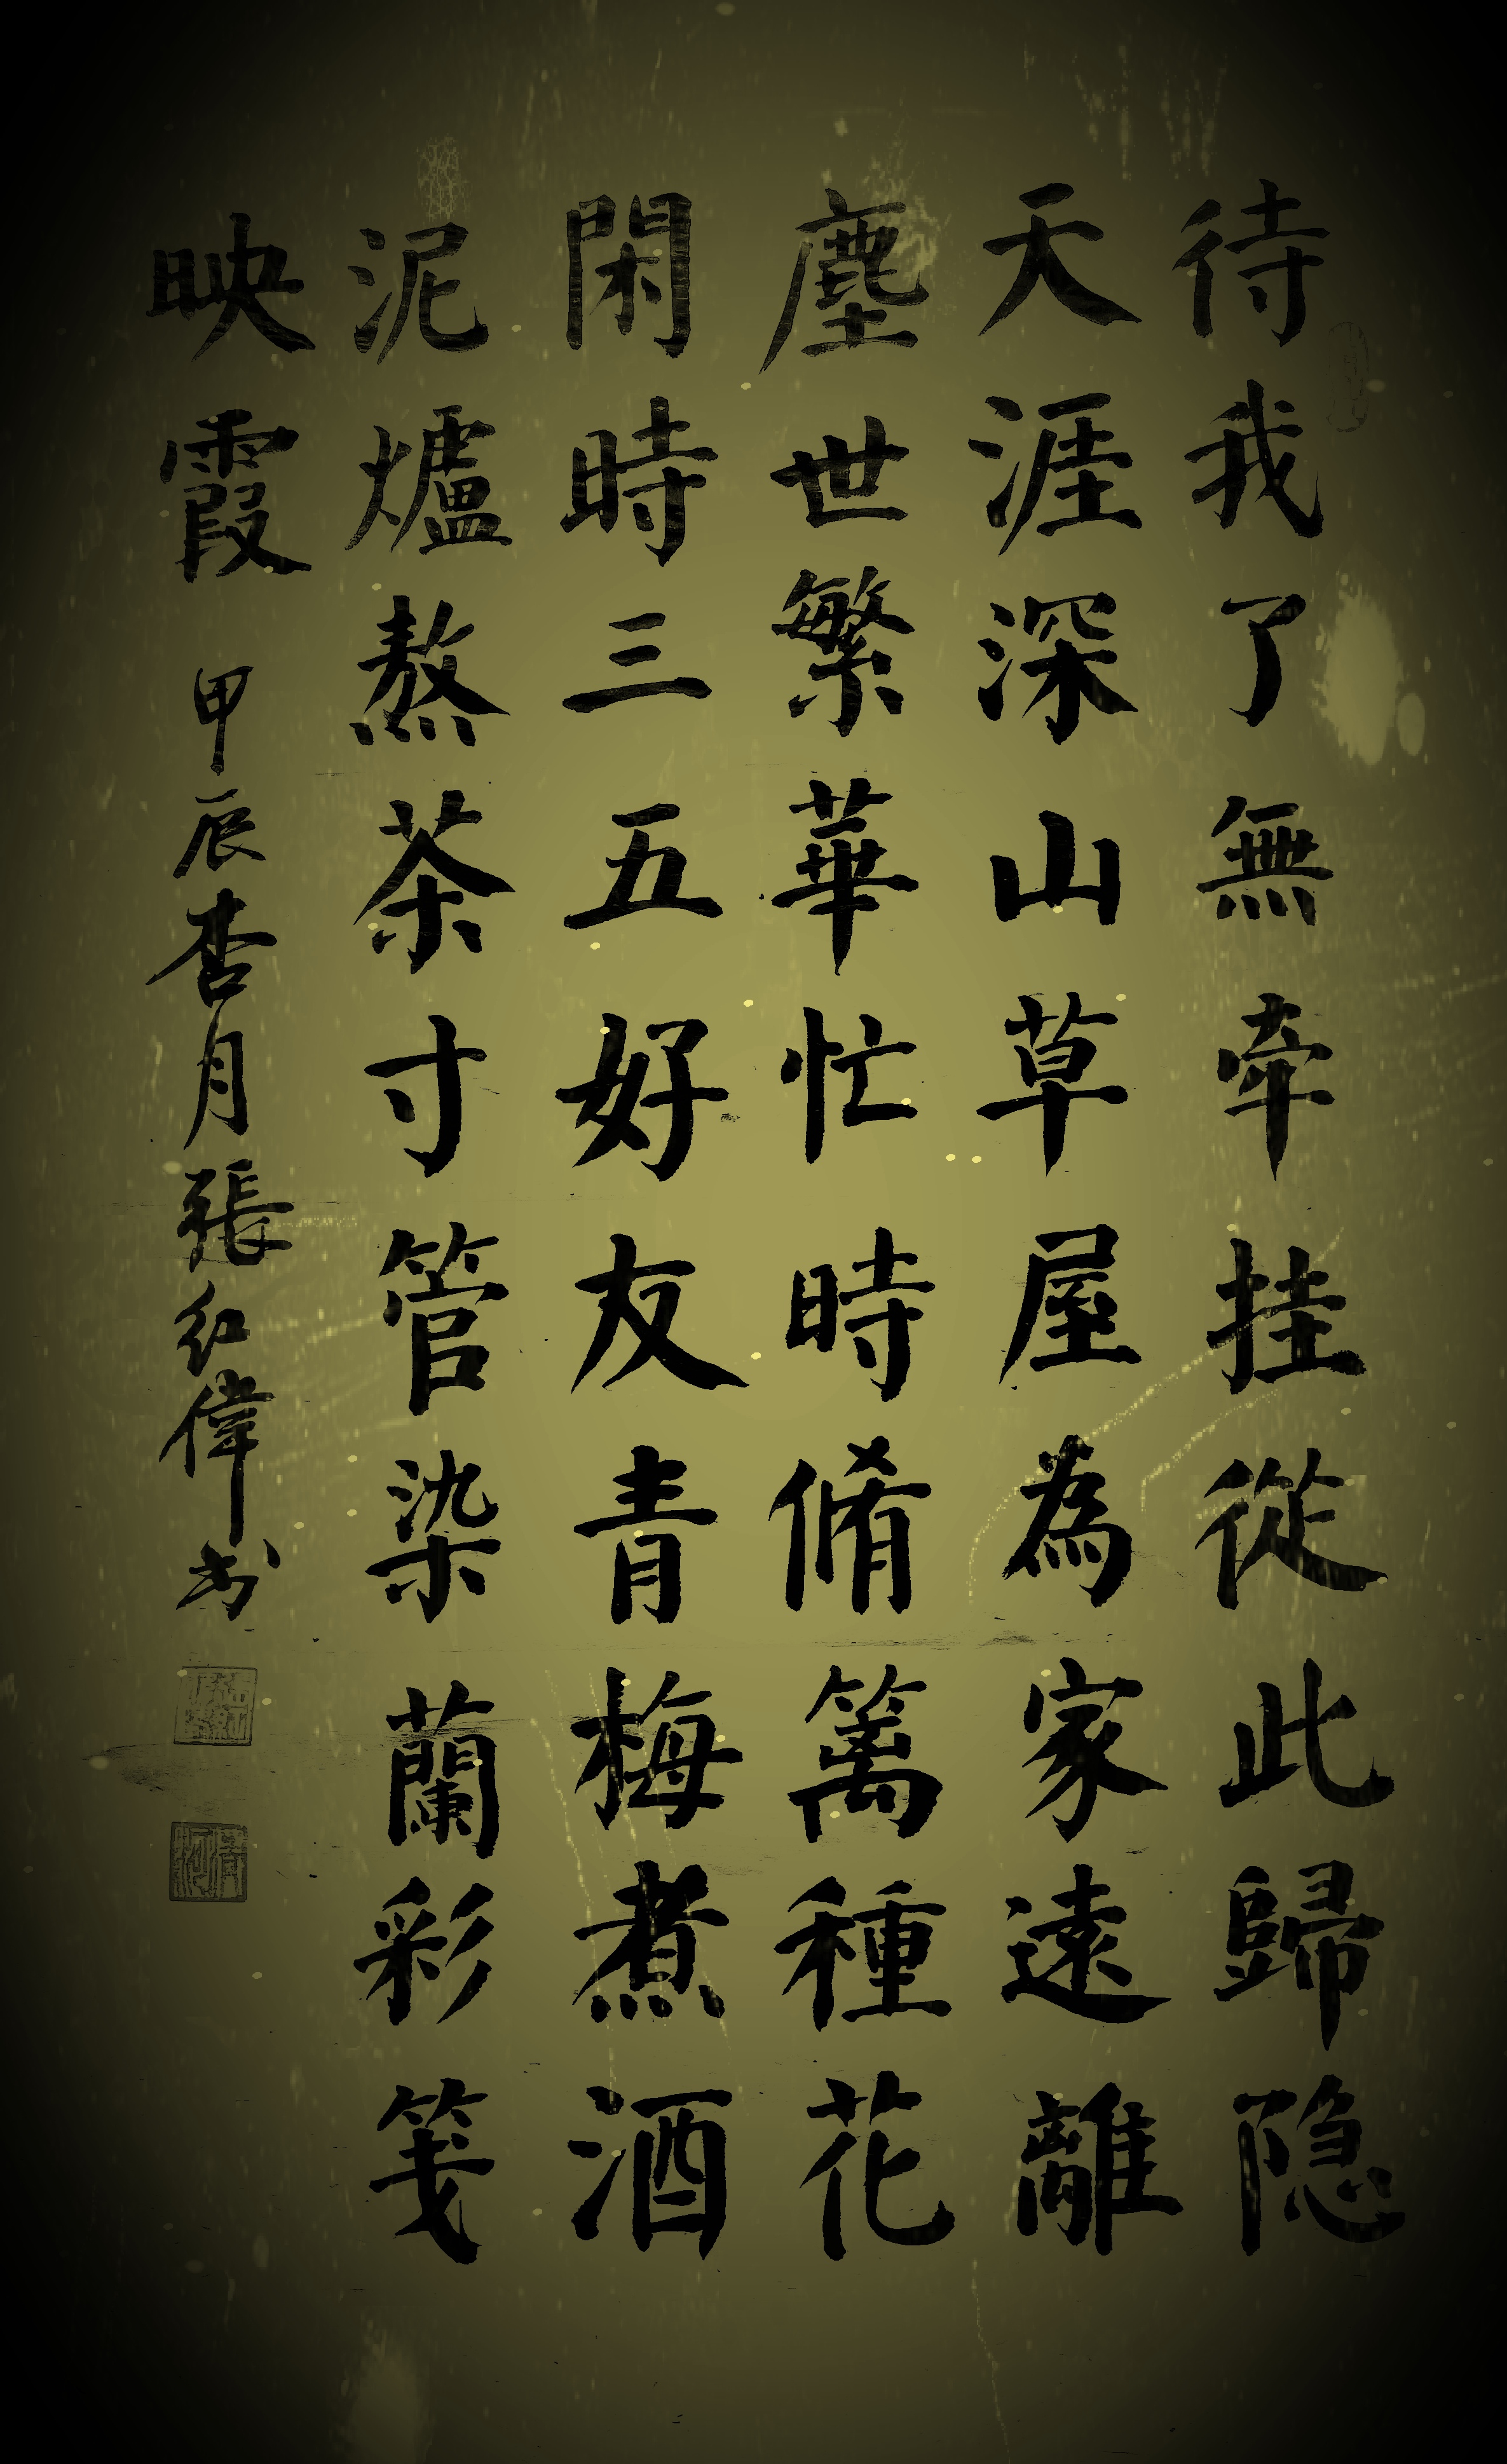 待我了無牵挂從此歸隐
天涯深山草屋為家遠離
塵世繁華忙時脩篱種花
閑時三五好友青梅煮酒
泥爐熬茶寸管染蘭彩笺
映霞 甲辰杏月張紅偉书